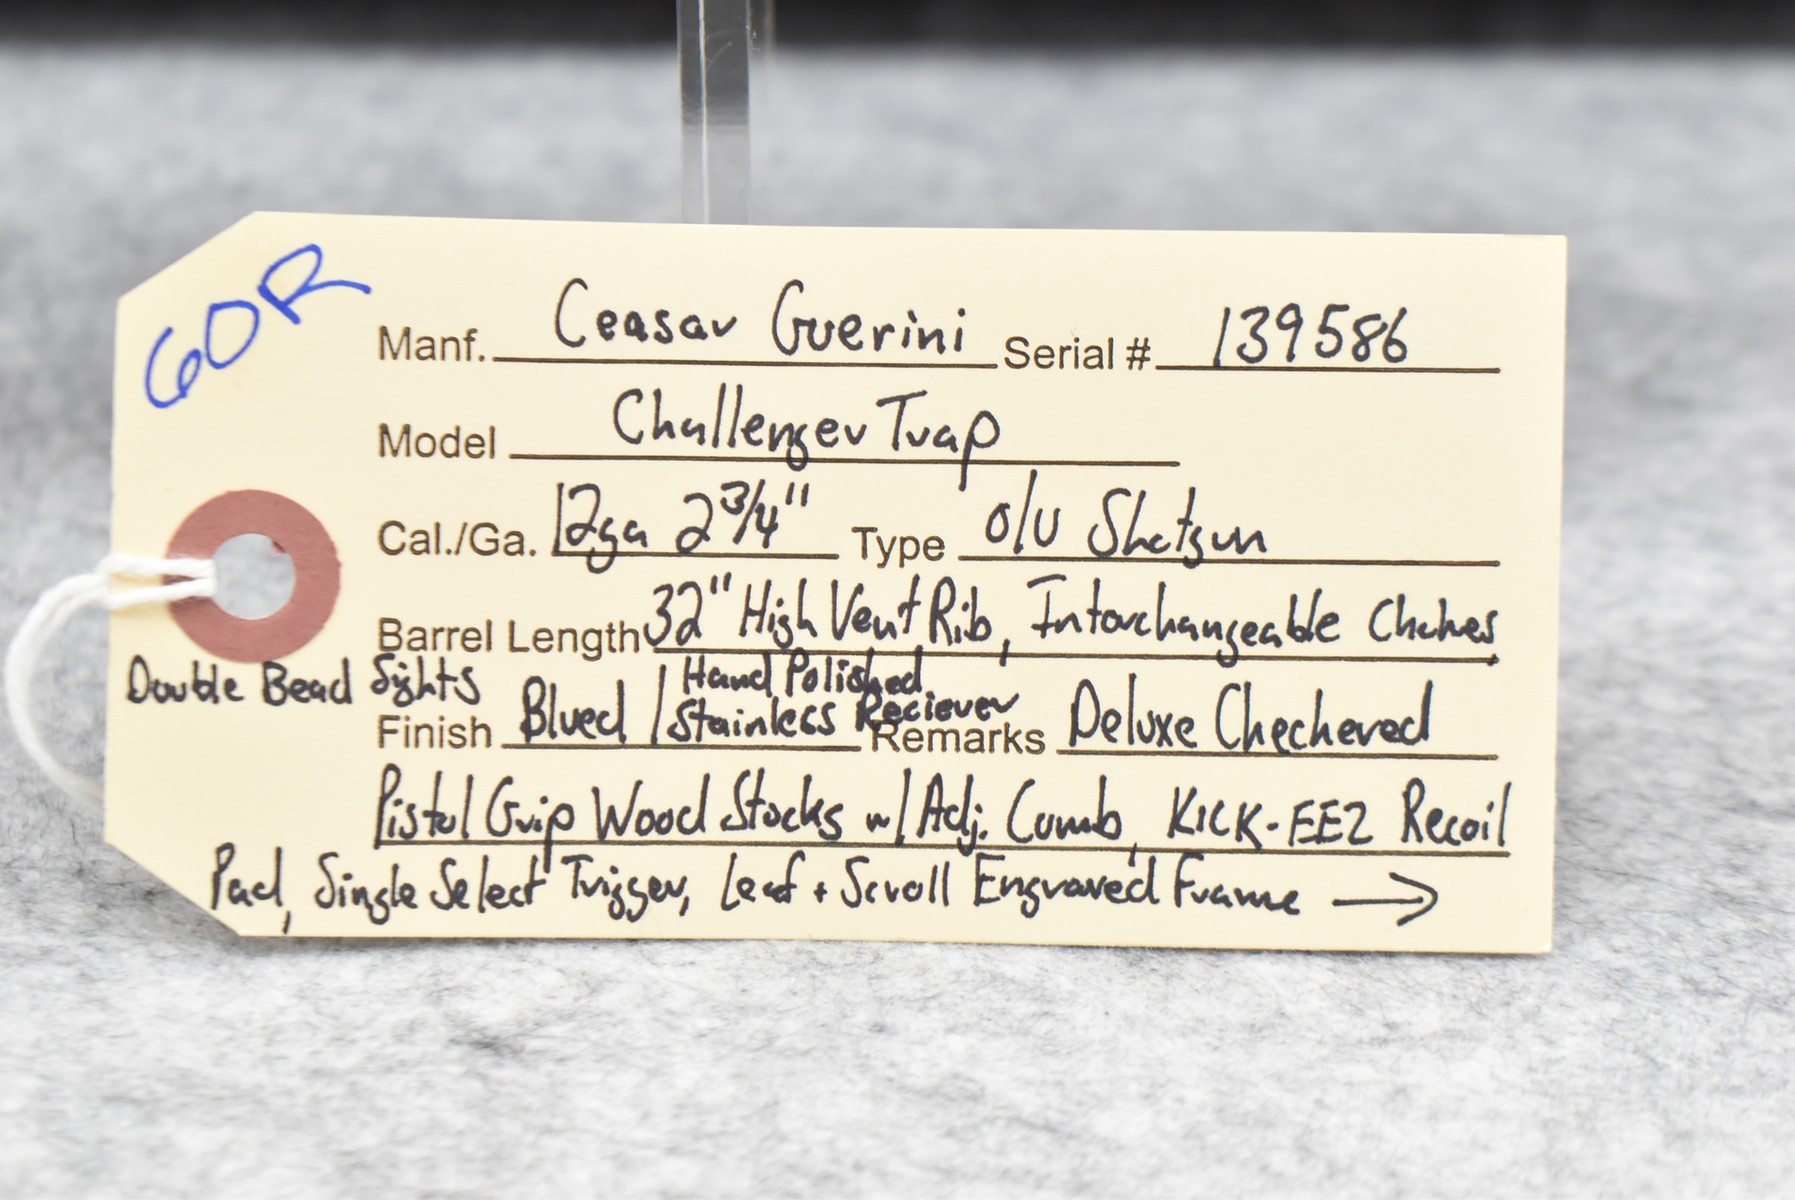 GOR
Manf. Ceasar Guerini Serial # 139586
Model Challenger Trap
Cal./Ga. 12ga 2 3/4" Type O/U Shotgun
Barrel Length 32" High Vent Rib, Interchangeable Chokes,
Double Bead Sights
Hand Polished
Finish Blued / Stainless Reciever Remarks Deluxe Checkered
Pistol Grip Wood Stocks w/ Adj. Comb, KICK-EEZ Recoil
Pad, Single Select Trigger, Leaf + Scroll Engraved Frame →